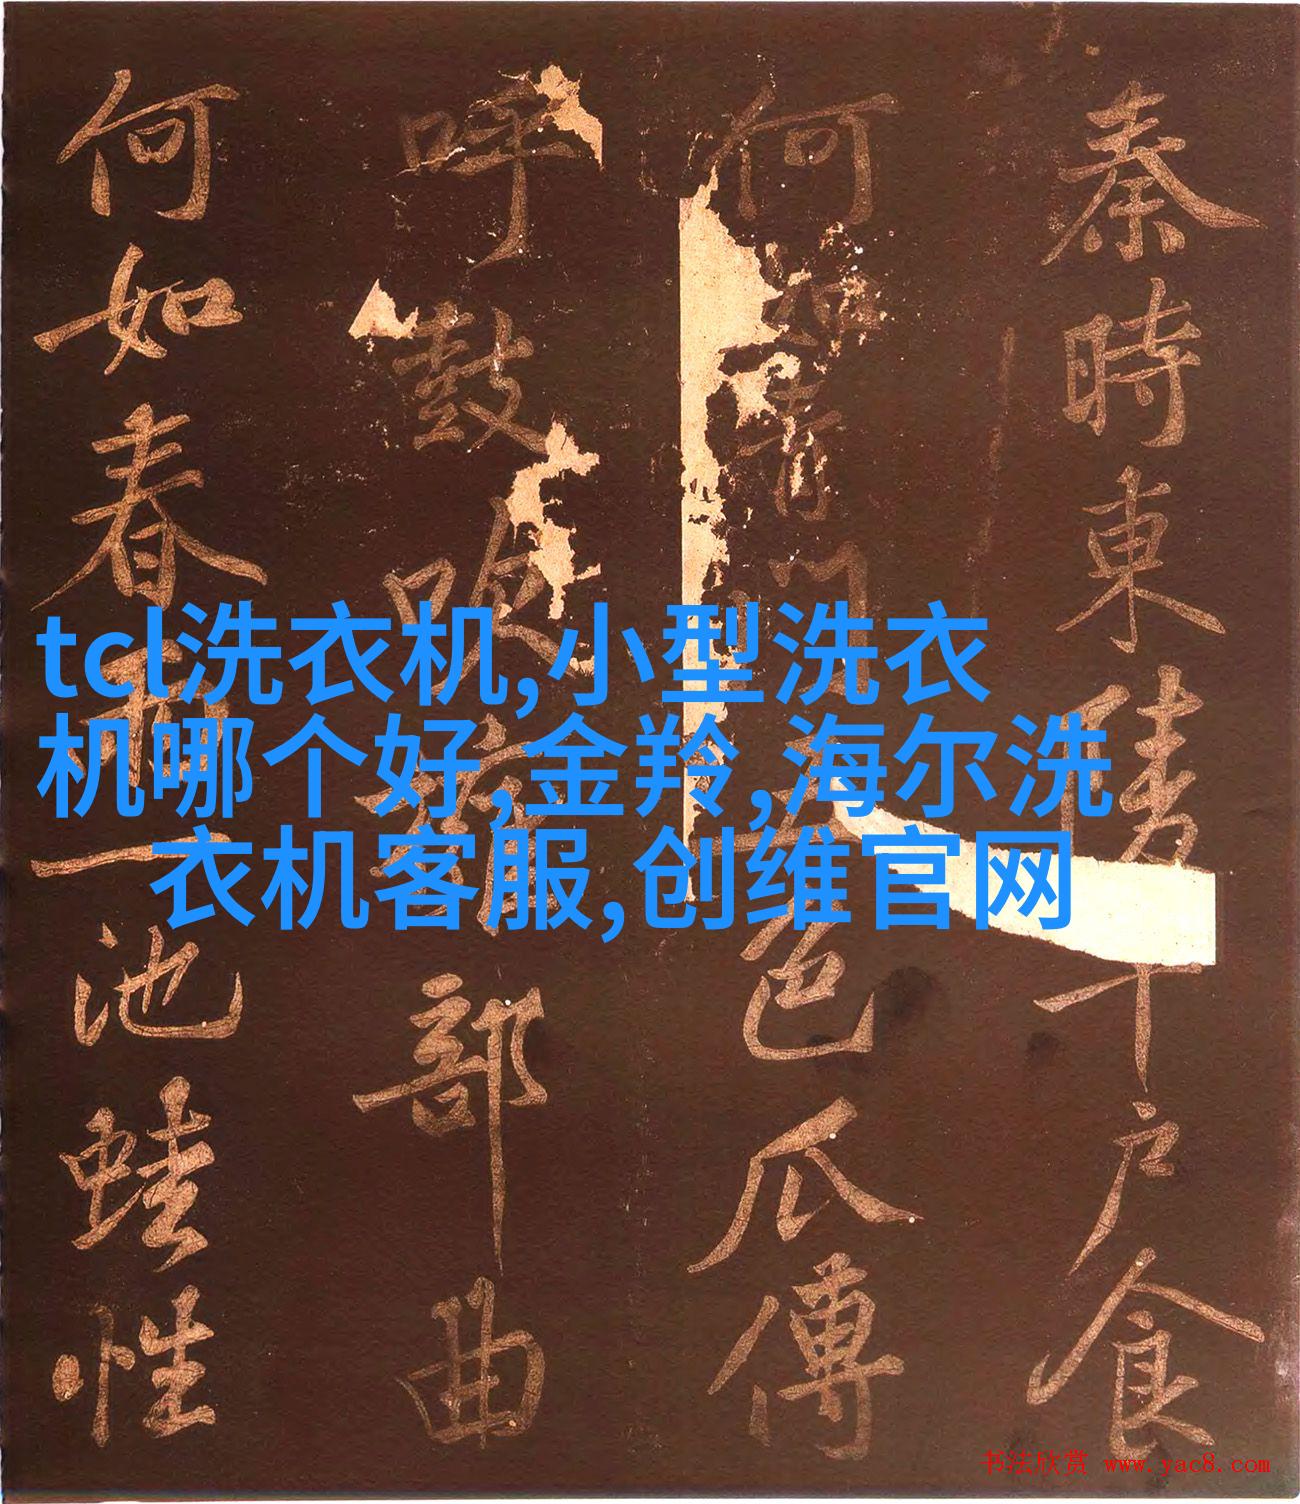 秦時東陵千戶食
何如青門五色瓜傅
呼鼓吹算部曲
何如春雨一池蛙性
tcl洗衣机,小型洗衣
机哪个好,金羚,海尔洗
衣机客服,创维官网
书法欣赏 www.yac8.com